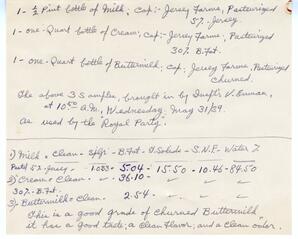 1 - ½ Pint bottle of Milk; Cap:- Jersey Farms, Pasteurized
5% Jersey.
1 - one-Quart bottle of Cream; Cap; Jersey Farms, Pasteurized
30% B.Fat.
1 - one-Quart bottle of Buttermilk; Cap; Jersey Farms, Pasteurized
Churned.
The above 3 Samples, brought in by
at 10:50 a.m., Wednesday, May 31/39.
As used by the Royal Party.
1) Milk - Clean - SpGr - B.Fat - T.Solids - S.N.F. - Water %
5% - Jersey - 1.033 - 5.04 - 15.50 - 10.46 - 84.50
2) Cream - Clean - 36.10 - " " "
30% B.Fat.
3) Buttermilk - Clean - 2.54 - " " "
This is a good grade of Churned Buttermilk,
it has a good taste; a clean flavor, and a clean odor.